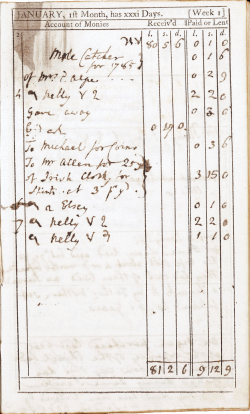 JANUARY, 1st Month, has xxxi Days. [Week 1]
Account of Monies Receiv'd Paid or Lent
l. s. d. l. s. d.
80 5 6 0 1 0
Mole Catcher 0 1 6
for 1765
of Mr 0 2 9
4 Nelly V 2 2 2 0
Gave away 0 3 0
0 19 0
To Michael for Corns 0 3 6
To Mr Allen for 25 y
of Irish Cloth for 3 15 0
Shirts at 3 p y
Elsey 0 1 0
7 Nelly V 2 2 2 0
Nelly V 1 1 0
81 2 6 9 12 9